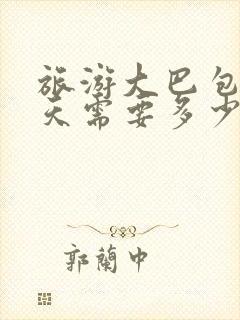 旅游大巴包
天需要多少
郭蘭中